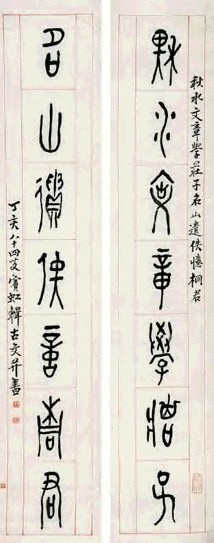 秋水文章學莊子名山遺佚憶桐君
秋水文章學莊子
名山遺佚憶桐君
丁亥八十四叟賓虹輯古文并書